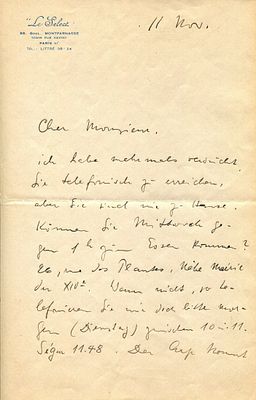 "Le Select"
99, BOUL. MONTPARNASSE
PARIS
TÉL.: LITTRÉ 38-24
11 Nov.
Cher Monsieur,
ich habe mehrmals versucht
Sie telefonisch zu erreichen,
aber Sie sind nie zu Hause.
Können Sie Mittwoch ge-
gen 1h zum Essen kommen?
26, rue des Plantes, Nähe Mairie
du XIVe. Wenn nicht, so te-
lefonieren Sie mir doch bitte mor-
gen (Dienstag) zwischen 10 u. 11.
Ségur 11.48. Der Arp kommt